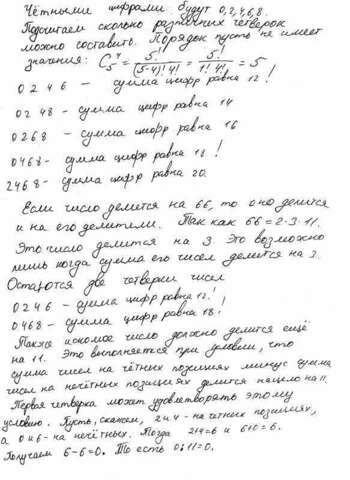 Чётными цифрами будут 0,2,4,6,8.
Подсчитаем сколько различных четверок
можно составить. Порядок пусть не имеет
значения: C₅⁴ = 5! / (5-4)! 4! = 5! / 1! 4! = 5
0 2 4 6 – сумма цифр равна 12!
0 2 4 8 – сумма цифр равна 14
0 2 6 8 – сумма цифр равна 16
0 4 6 8 – сумма цифр равна 18!
2 4 6 8 – сумма цифр равна 20.
Если число делится на 66, то оно делится
и на его делители. Так как 66 = 2·3·11.
Это число делится на 3. Это возможно
лишь когда сумма его чисел делится на 3.
Остаются две четверки чисел
0 2 4 6 – сумма цифр равна 12!
0 4 6 8 – сумма цифр равна 18!
Также искомое число должно делится ещё
на 11. Это выполняется при условии, что
сумма чисел на чётных позициях минус сумма
чисел на нечётных позициях делится нацело на 11.
Первая четверка может удовлетворять этому
условию. Пусть, скажем, 2 и 4 - на четных позициях,
а 0 и 6 - на нечётных. Тогда 2+4=6 и 6+0=6.
Получаем 6-6=0. То есть 0:11=0.